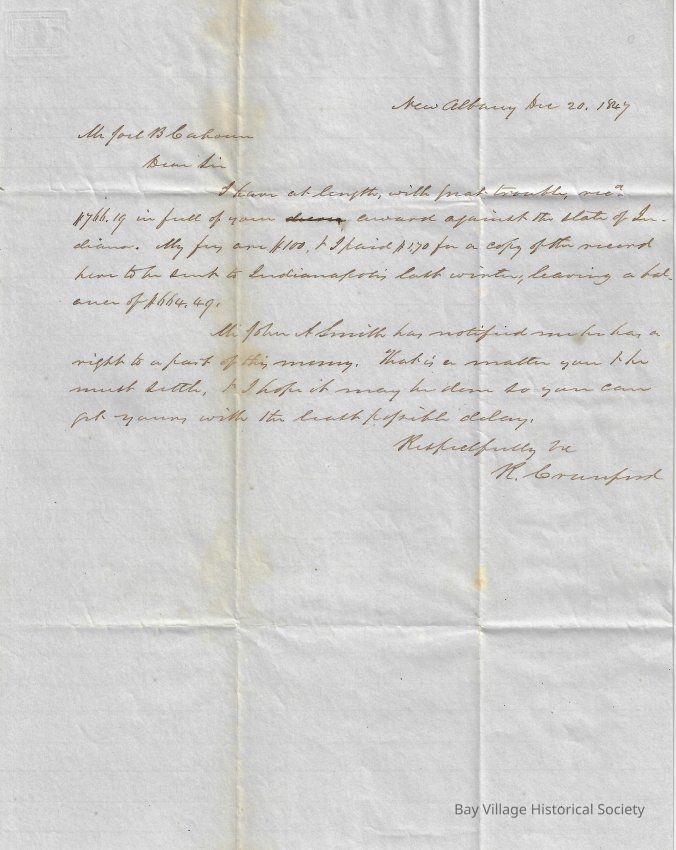 New Albany Dec 20. 1847
Mr Joel B Cahoon
Dear Sir
I have at length, with great trouble, recd
$766.19 in full of your award against the State of In-
diana. My fees are $100, & I paid $1.70 for a copy of the record
here to be sent to Indianapolis last winter, leaving a bal-
ance of $664.49.
Mr John A Smith has notified me he has a
right to a part of this money. That is a matter you & he
must settle, & I hope it may be done so you can
get yours with the least possible delay.
Respectfully &c
R. Crawford
Bay Village Historical Society